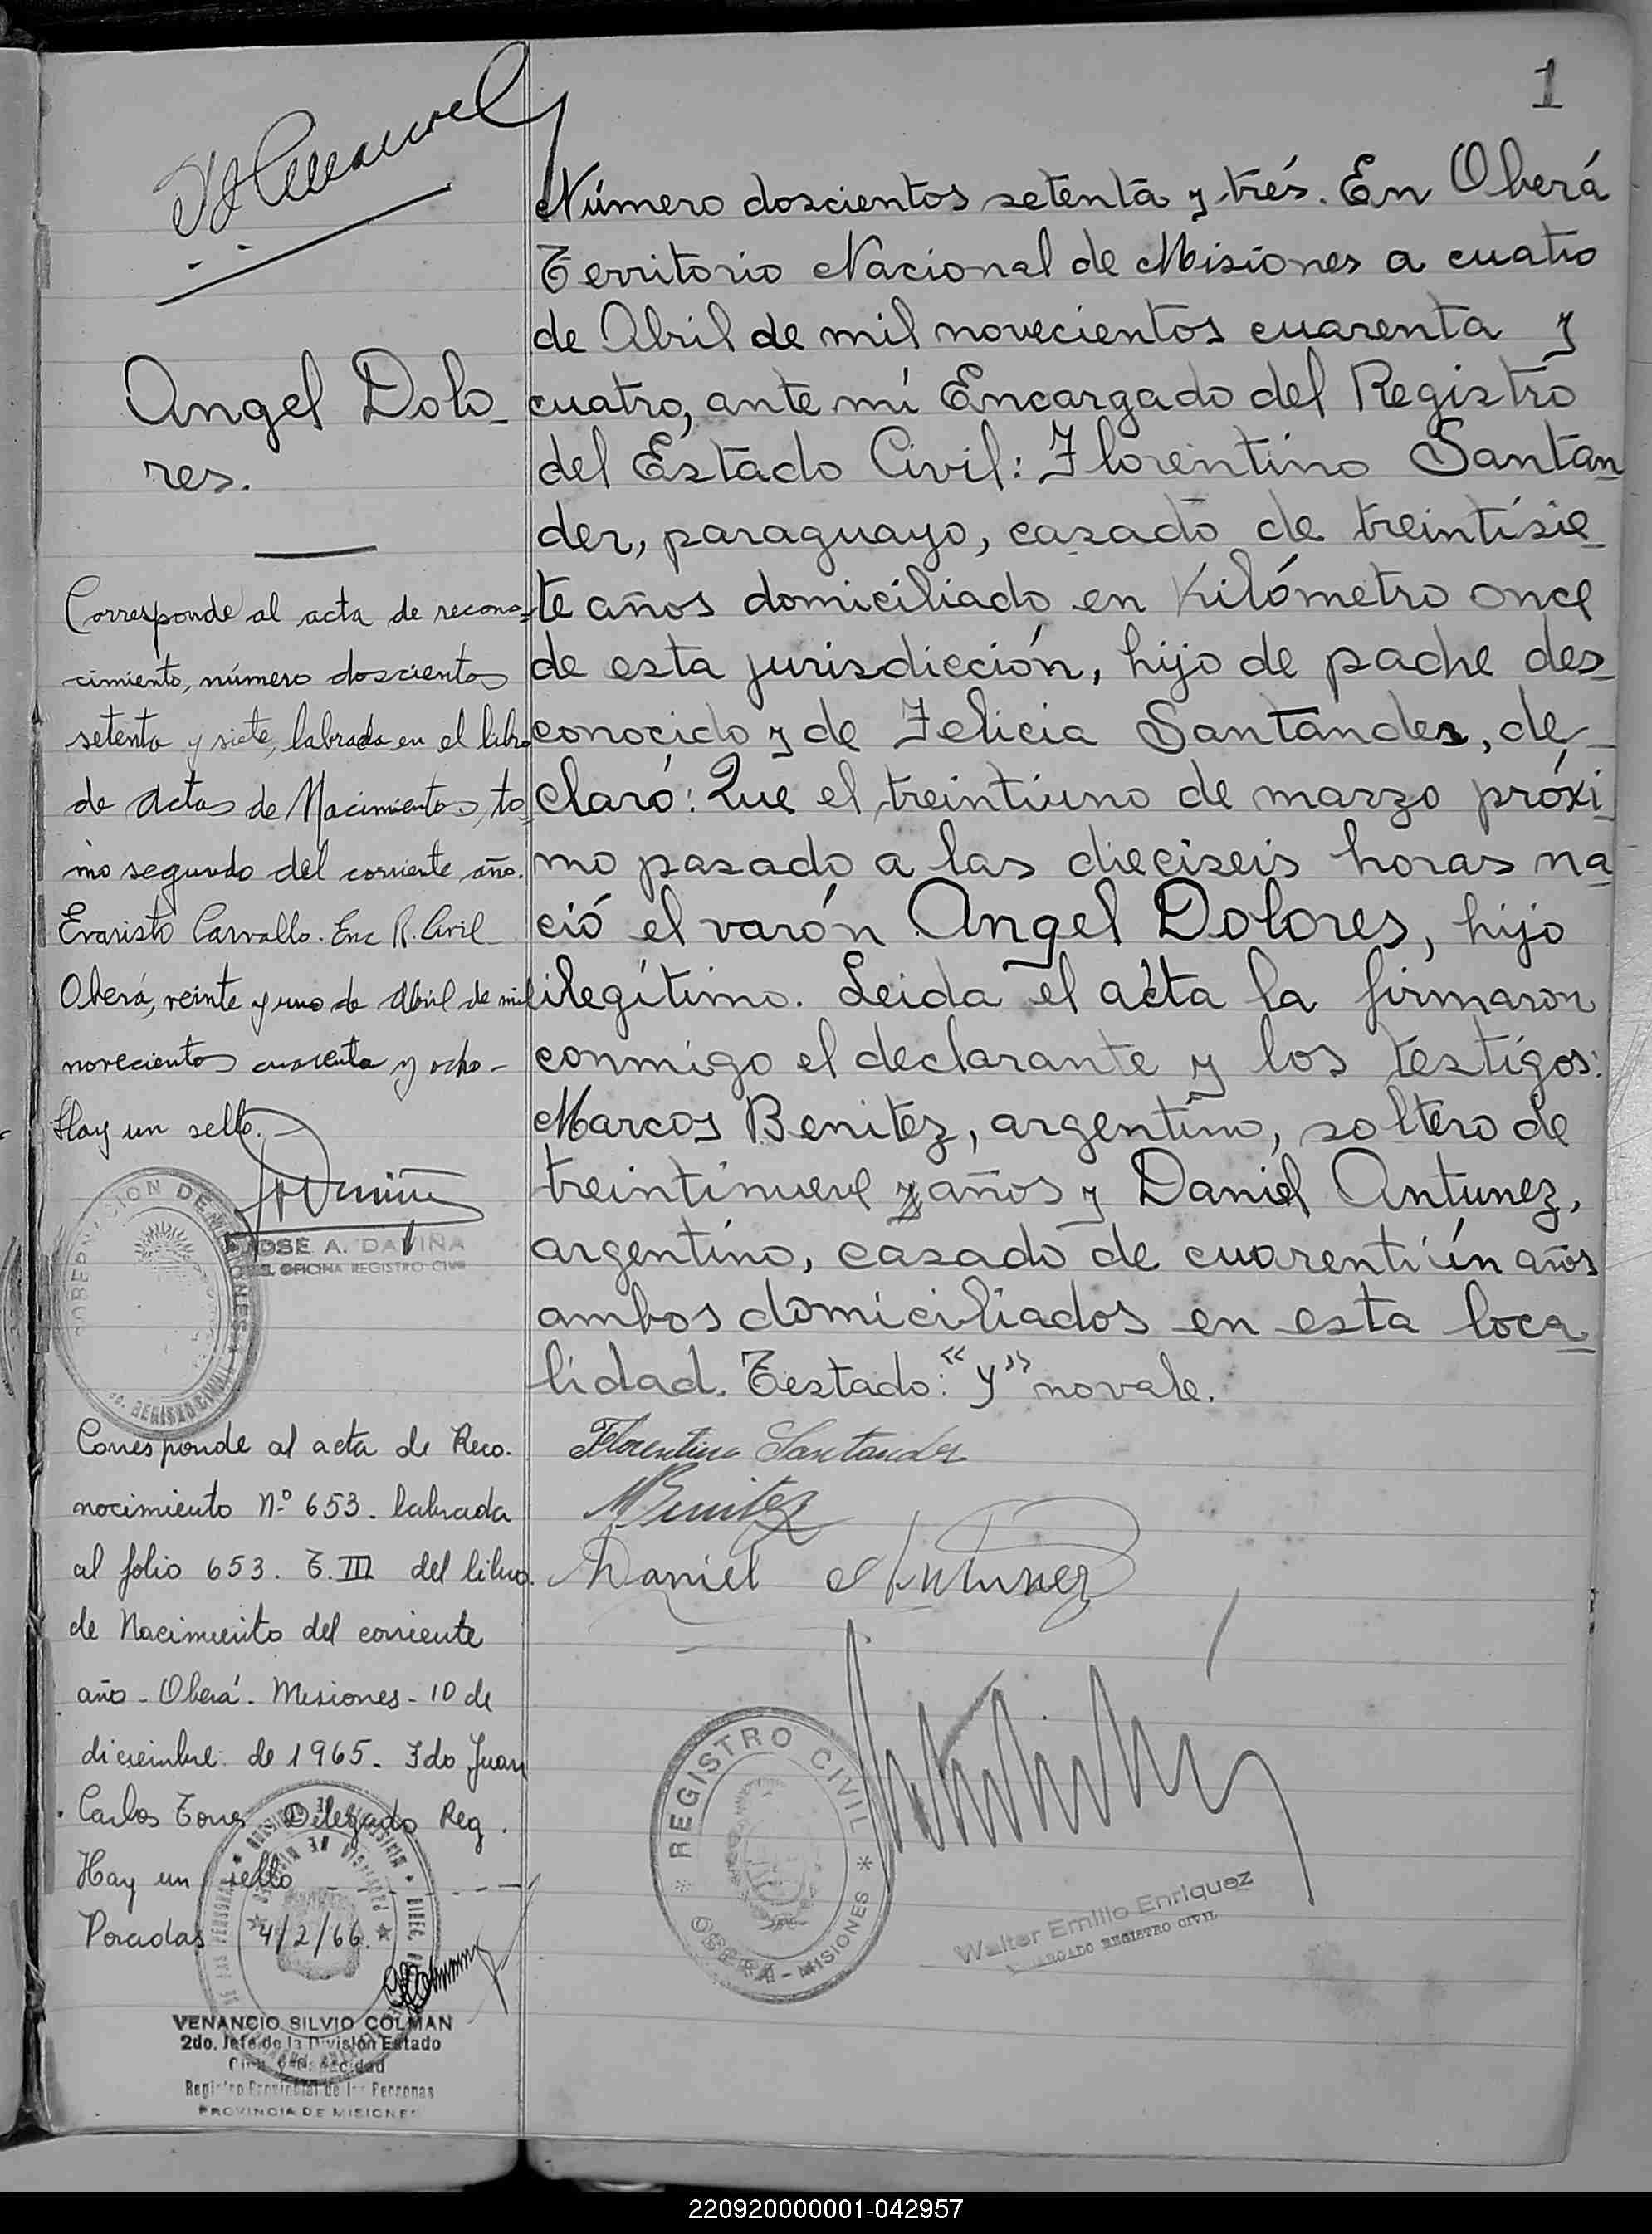 1
Angel Dolo_
res.
Corresponde al acta de recono=
cimiento, número doscientos
setenta y siete, labrada en el libro
de Actas de Nacimientos, to=
mo segundo del corriente año.
Evaristo Carvallo. Enc R. Civil
Oberá, veinte y uno de Abril de mil
novecientos cuarenta y ocho -
Hay un sello. -
GOBERNACION DE MISIONES
JOSE A. DARIÑA
OFICINA REGISTRO CIVIL
Corresponde al acta de Reco.
nocimiento Nº 653. labrada
al folio 653. T. III del libro.
de Nacimiento del corriente
año - Oberá. Misiones - 10 de
diciembre de 1965 - Fdo Juan
Carlos Torres Delegado Reg.
Hay un sello
Posadas 4/2/66.
VENANCIO SILVIO COLMAN
2do. Jefe de la División Estado
Civil y Capacidad
Registro Provincial de las Personas
PROVINCIA DE MISIONES
Número doscientos setenta y trés. En Oberá
Territorio Nacional de Misiones a cuatro
de Abril de mil novecientos cuarenta y
cuatro, ante mí Encargado del Registro
del Estado Civil: Florentino Santan_
der, paraguayo, casado de treintisie_
te años domiciliado en Kilómetro once
de esta jurisdicción, hijo de padre des_
conocido y de Felicia Santander, de_
claró: Que el treintiuno de marzo próxi_
mo pasado a las dieciseis horas na_
ció el varón Angel Dolores, hijo
ilegítimo. Leida el acta la firmaron
conmigo el declarante y los testigos:
Marcos Benitez, argentino, soltero de
treintinueve y años y Daniel Antunez,
argentino, casado de cuarentiún años
ambos domiciliados en esta loca_
lidad. Testado: "y" no vale.
Florentino Santander
MBenitez
Daniel Antunez
REGISTRO CIVIL
OBERA - MISIONES
Walter Emilio Enriquez
REGISTRO CIVIL
220920000001-042957